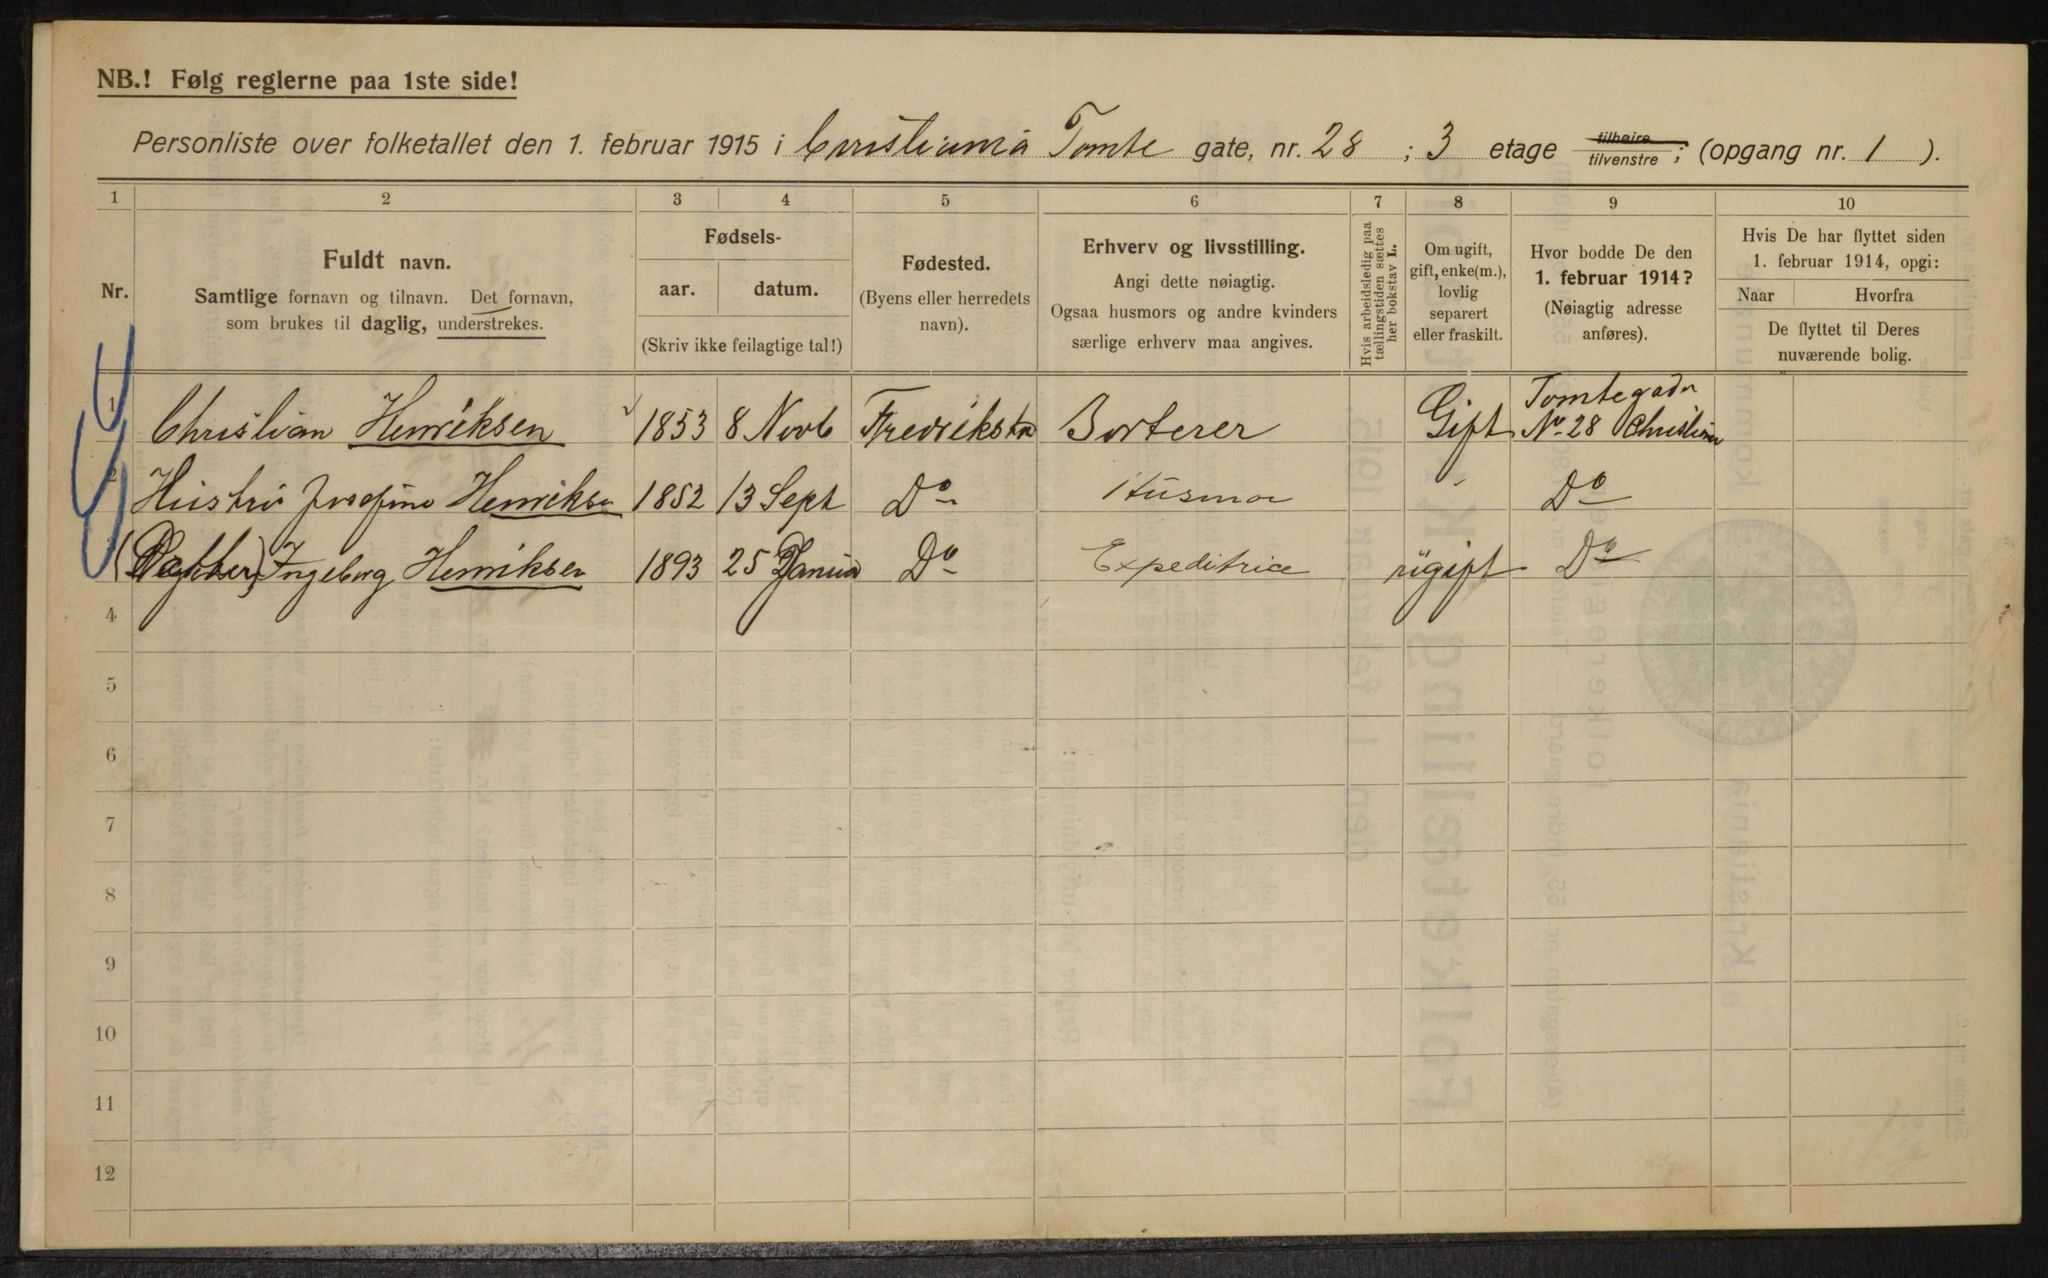 NB.! Følg reglerne paa 1ste side!
Personliste over folketallet den 1. februar 1915 i Christiania Tomte gate, nr. 28 ; 3 etage tilhøire tilvenstre ; (opgang nr. 1 ).
1 2 3 4 5 6 7 8 9 10
Nr.
Fuldt navn.
Samtlige fornavn og tilnavn. Det fornavn,
som brukes til daglig, understrekes.
Fødsels-
aar. datum.
(Skriv ikke feilagtige tal!)
Fødested.
(Byens eller herredets
navn).
Erhverv og livsstilling.
Angi dette nøiagtig.
Ogsaa husmors og andre kvinders
særlige erhverv maa angives.
Hvis arbeidsledig paa
tællingstiden sættes
her bokstav L.
Om ugift,
gift, enke(m.),
lovlig
separert
eller fraskilt.
Hvor bodde De den
1. februar 1914?
(Nøiagtig adresse
anføres).
Hvis De har flyttet siden
1. februar 1914, opgi:
Naar Hvorfra
De flyttet til Deres
nuværende bolig.
1 Christian Henriksen 1853 8 Novb Fredriksta Borterer Gift Tomtegadn
No 28 Christian
2 Hustru Josefine Henriksen 1852 13 Sept Do Husmor Do
3 (Doghter) Ingeborg Henriksen 1893 25 Janua Do Expeditrice ugift Do
4
5
6
7
8
9
10
11
12